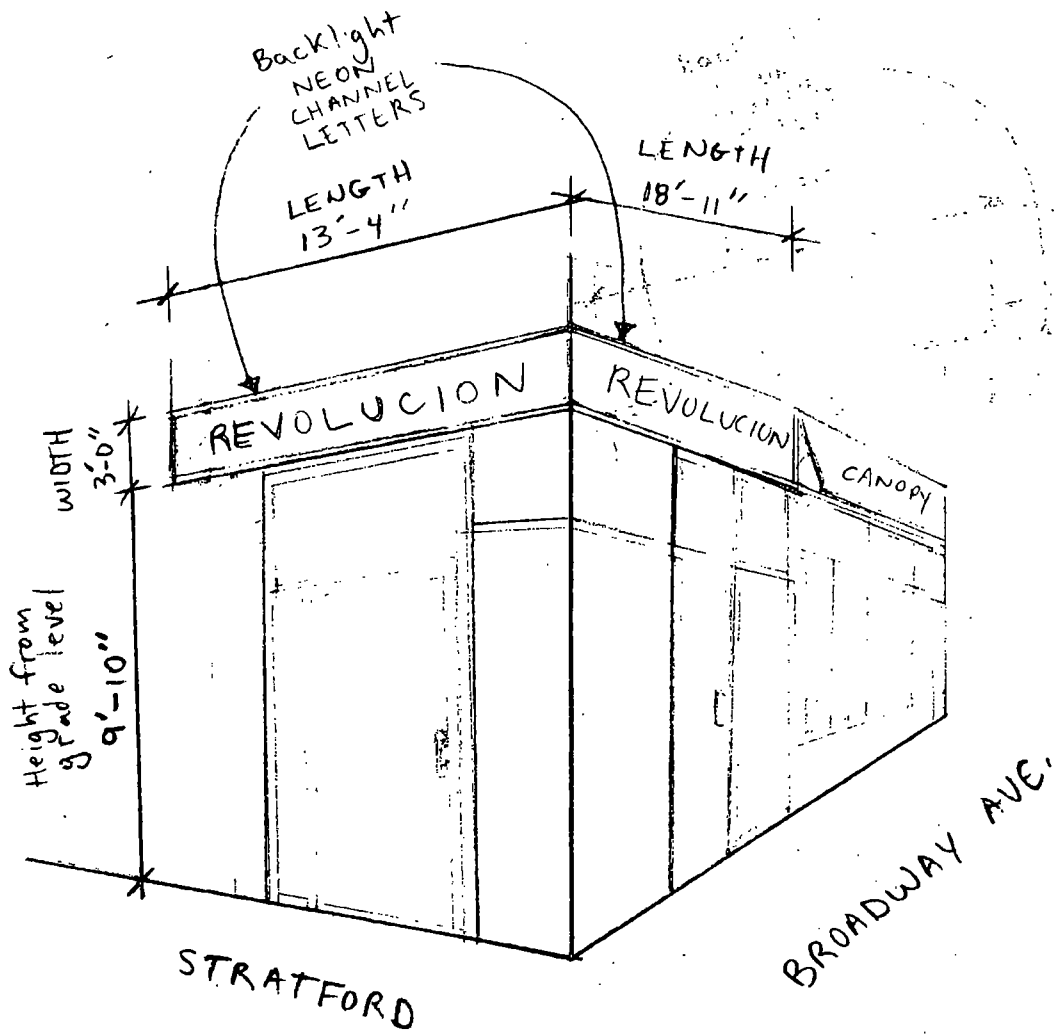 Backlight
NEON
CHANNEL
LETTERS
LENGTH
13'-4"
LENGTH
18'-11"
REVOLUCION
REVOLUCION
CANOPY
WIDTH
3'-0"
Height from
grade level
9'-10"
STRATFORD
BROADWAY AVE.